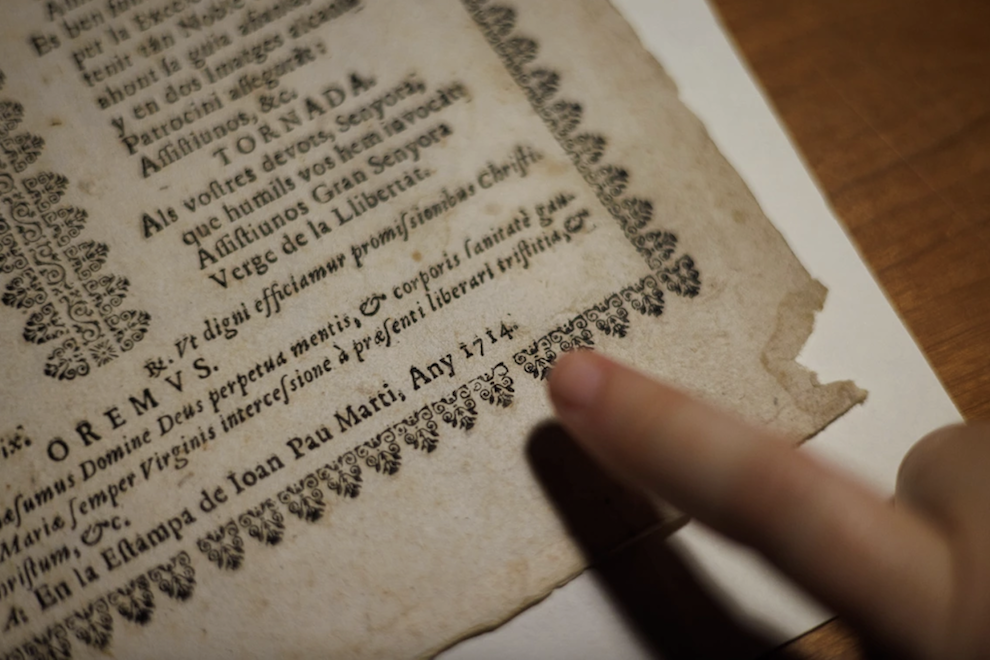 Es ben
per la Exce
tenit tan Noble
ahont la guia
y en dos Imatges
Patrocini aſſeguràt:
Aſſiſtiunos, &c.
TORNADA.
Als voſtres devots, Senyora,
que humils vos hem invocàt
Aſſiſtiunos Gran Senyora
Verge de la Llibertàt.
&. Vt digni efficiamur promiſsionibus Chriſti.
OREMVS.
æſumus Domine Deus perpetua mentis, & corporis ſanitatè gau-
Mariæ ſemper Virginis interceſsione à præſenti liberari triſtitia, &
hriſtum, &c.
A: En la Eſtampa de Ioan Pau Marti, Any 1714.